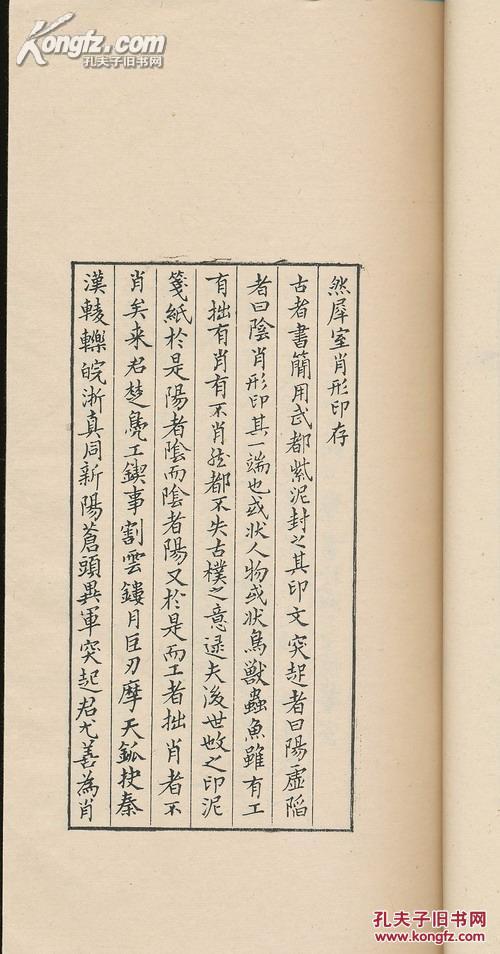 Kongfz.com
孔夫子旧书网
然犀室肖形印存
古者書簡用武都紫泥封之其印文突起者曰陽虛陷
者曰陰肖形印其一端也或狀人物或狀鳥獸蟲魚雖有工
有拙有肖有不肖然都不失古樸之意逮夫後世攺之印泥
箋紙於是陽者陰而陰者陽又於是而工者拙肖者不
肖矣来君楚鳧工鍥事割雲鏤月巨刃摩天觚抉秦
漢輘轢皖浙真同新陽蒼頭異軍突起君尤善為肖
孔夫子旧书网
www.kongfz.com